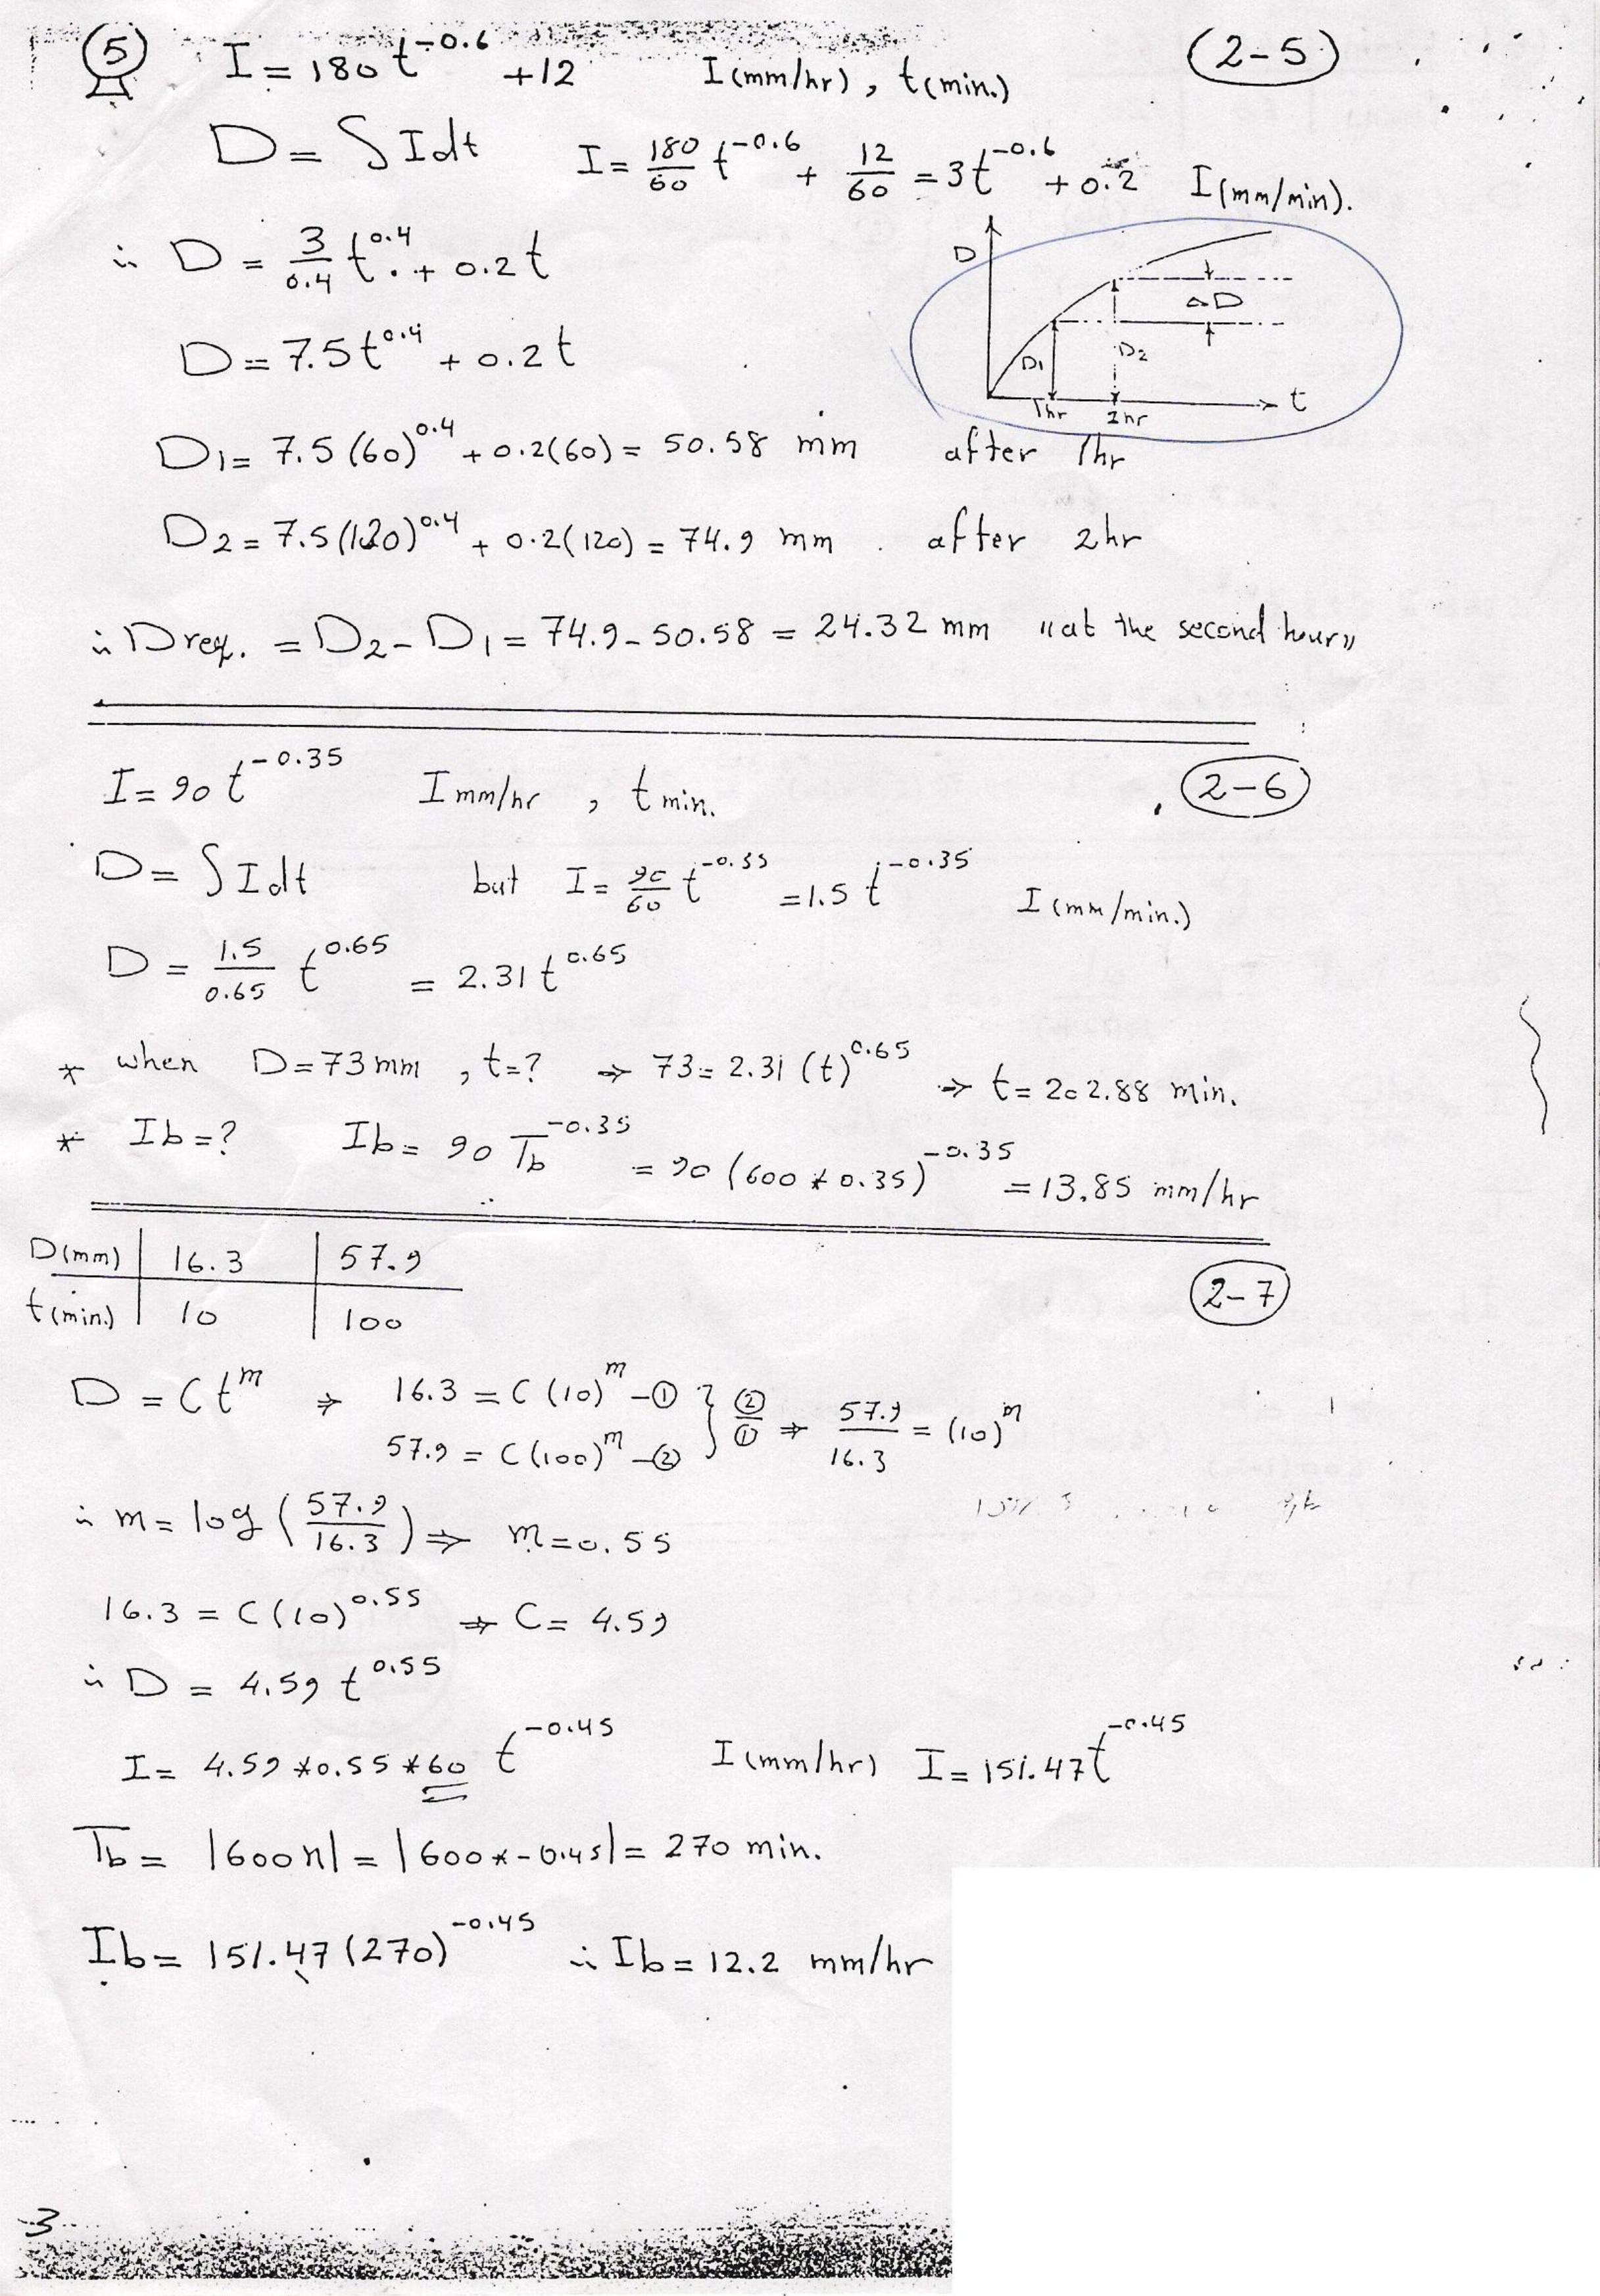 5 I = 180 t^-0.6 + 12 I(mm/hr), t(min.) (2-5)
D = ∫ I dt I = 180/60 t^-0.6 + 12/60 = 3t^-0.6 + 0.2 I(mm/min).
∴ D = 3/0.4 t^0.4 + 0.2t
D = 7.5t^0.4 + 0.2t
D ΔD D1 D2 1hr 2hr t
D1 = 7.5(60)^0.4 + 0.2(60) = 50.58 mm after 1hr
D2 = 7.5(120)^0.4 + 0.2(120) = 74.9 mm. after 2hr
∴ Dreq. = D2 - D1 = 74.9 - 50.58 = 24.32 mm "at the second hour"
I = 90 t^-0.35 I mm/hr, t min. 2-6
D = ∫ I dt but I = 90/60 t^-0.35 = 1.5 t^-0.35 I(mm/min.)
D = 1.5/0.65 t^0.65 = 2.31 t^0.65
* when D = 73mm, t=? ⇒ 73 = 2.31 (t)^0.65 ⇒ t = 202.88 min.
* Ib=? Ib = 90 Tb^-0.35 = 90 (600*0.35)^-0.35 = 13.85 mm/hr
D(mm) | 16.3 | 57.9
t(min.) | 10 | 100
2-7
D = C t^m ⇒ 16.3 = C(10)^m -① } ②/① ⇒ 57.9/16.3 = (10)^m
57.9 = C(100)^m -②
∴ m = log (57.9/16.3) ⇒ m = 0.55
16.3 = C(10)^0.55 ⇒ C = 4.59
∴ D = 4.59 t^0.55
I = 4.59*0.55*60 t^-0.45 I(mm/hr) I = 151.47t^-0.45
Tb = |600n| = |600*-0.45| = 270 min.
Ib = 151.47(270)^-0.45 ∴ Ib = 12.2 mm/hr
3